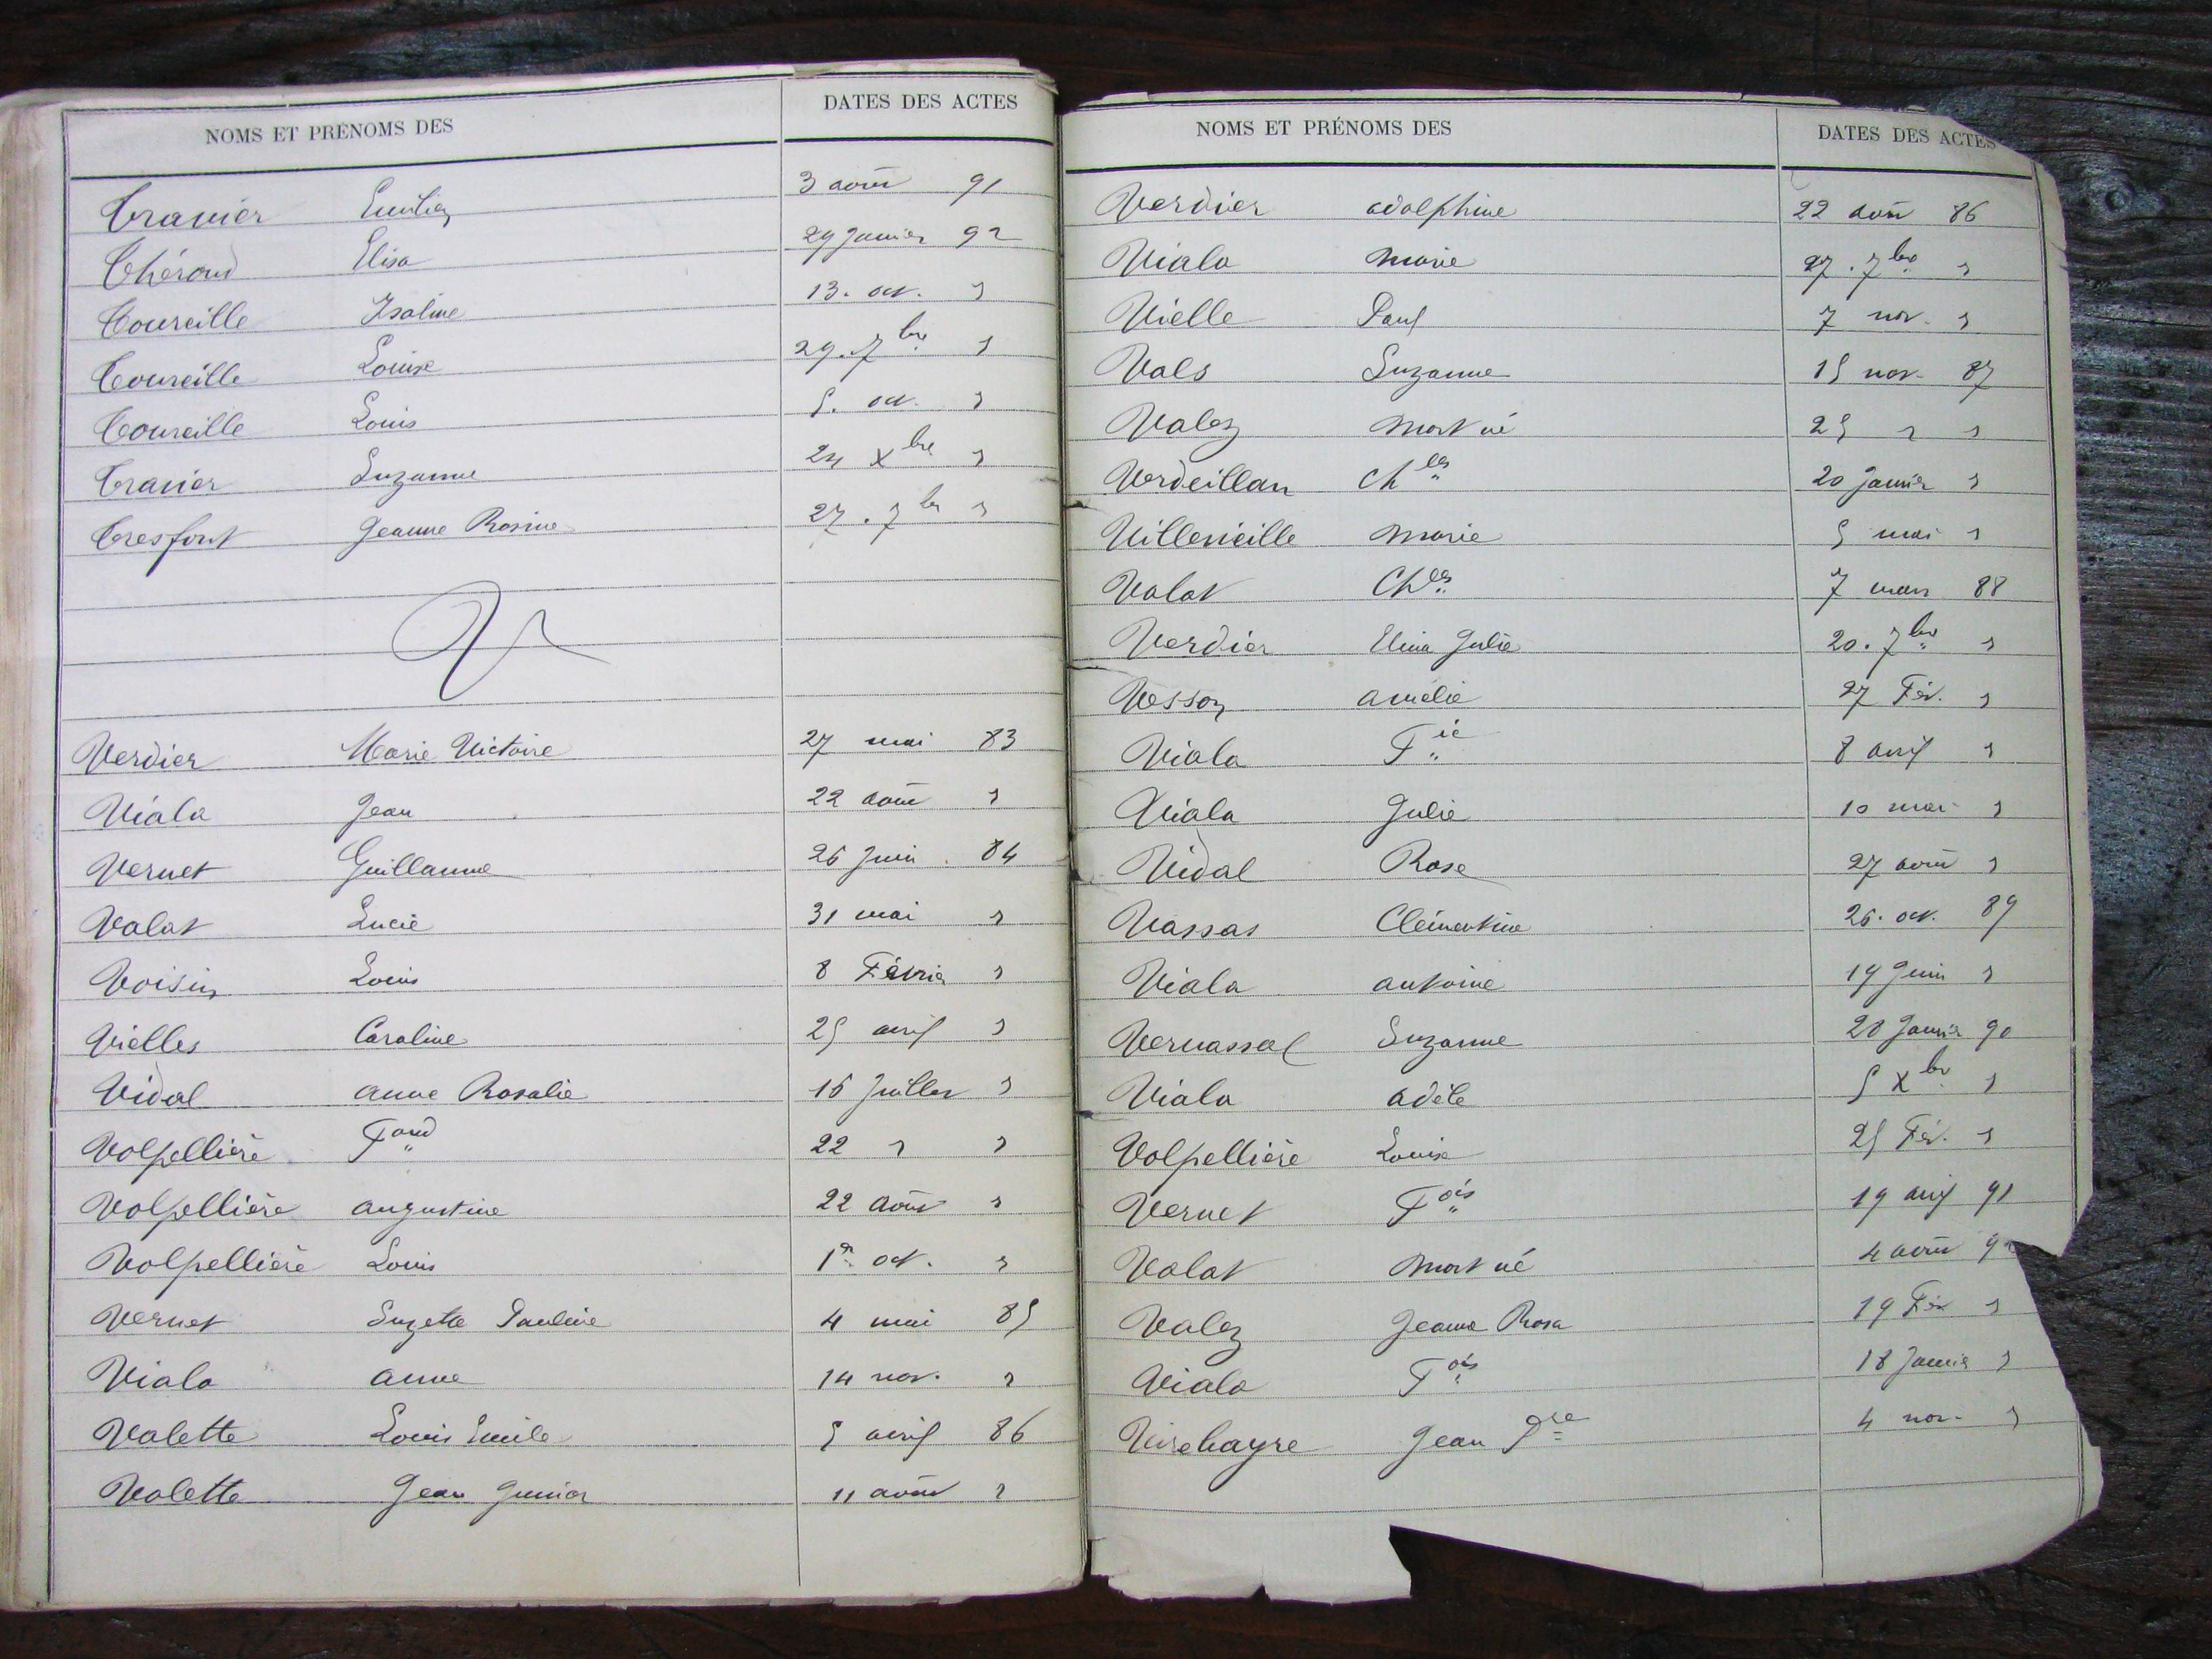 NOMS ET PRÉNOMS DES DATES DES ACTES
Travier Emilien 3 août 91
Théroud Elisa 29 Janvier 92
Toureille Isaline 13. oct. "
Toureille Louise 29. 7bre "
Toureille Louis 5. oct. "
Travier Suzanne 24 Xbre "
Tresfont Jeanne Rosine 27. 7bre "
V
Verdier Marie Victoire 27 mai 83
Viala Jean 22 août "
Vernet Guillaume 26 Juin 84
Valat Lucie 31 mai "
Voisin Louis 8 Février "
Vielles Caroline 25 avril "
Vidal Anne Rosalie 16 Juillet "
Volpellière Fand 22 " "
Volpellière Augustine 22 août "
Volpellière Louis 1er oct. "
Vernet Suzette Pauline 4 mai 85
Viala Anne 14 nov. "
Valette Louis Emile 5 avril 86
Valette Jean Junior 11 août "
NOMS ET PRÉNOMS DES DATES DES ACTES
Verdier Adolphine 22 août 86
Viala Marie 27. 7bre "
Vielle Paul 7 nov. "
Vals Suzanne 15 nov. 87
Valez Mort né 25 " "
Verdeillan Chles 20 Janvier "
Villevieille Marie 5 mai "
Valat Chles 7 mars 88
Verdier Elina Julie 20. 7bre "
Vesson Amélie 27 Fév. "
Viala Fic 8 avril "
Viala Julie 10 mai "
Vidal Rose 27 août "
Vassas Clémentine 26. oct. 89
Viala Antoine 19 Juin "
Vernassal Suzanne 28 Janvier 90
Viala Adèle 5 Xbre "
Volpellière Louise 25 Fév. "
Vernet Fois 19 avril 91
Valat Mort né 4 août 9
Valez Jeanne Rosa 19 Fév "
Viala Fois 18 Janvier "
Virebayre Jean Pre 4 nov. "